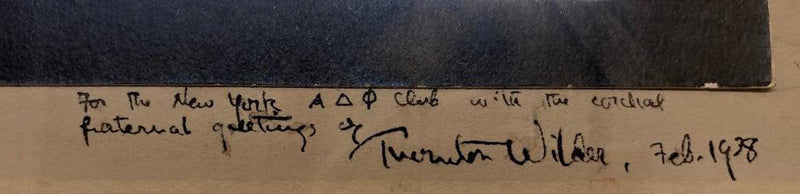 For the New York A Δ Φ Club with the cordial
fraternal greetings of
Thornton Wilder, Feb. 1928